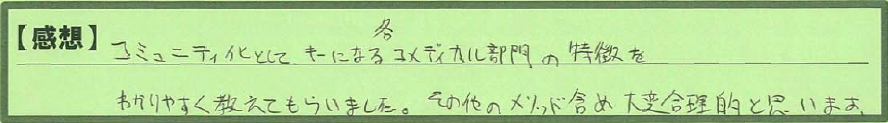 【感想】コミュニティ化として キーになる各コメディカル部門の特徴を
わかりやすく教えてもらいました。その他のメリット含め大変合理的と思います。